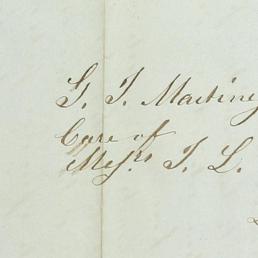 G. T. Martine
Care of
Messrs T. L.